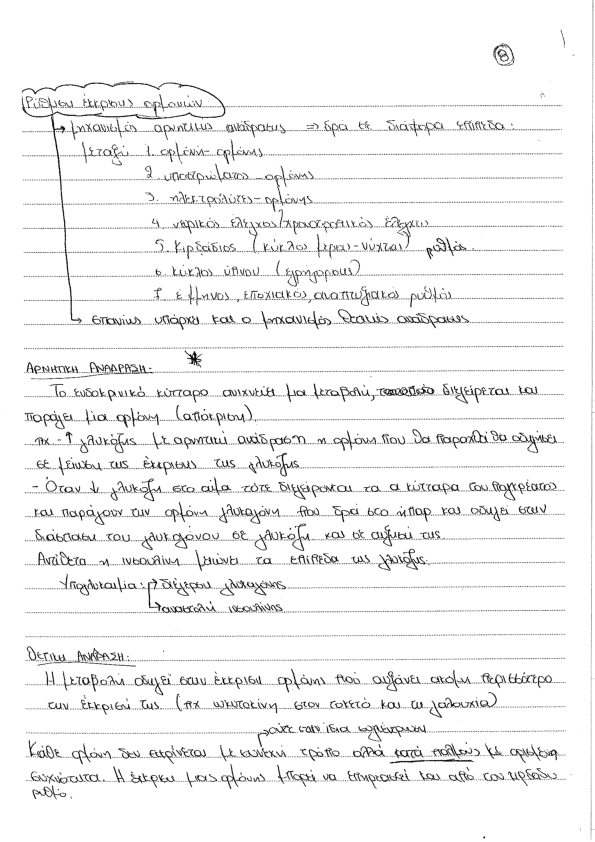 8
Ρύθμιση έκκρισης ορμονών
→ μηχανισμός αρνητικής ανάδρασης ⇒ δρα σε διάφορα επίπεδα:
μεταξύ 1. ορμόνη-ορμόνης
2. υποστρώματος-ορμόνης
3. ηλεκτρολύτες-ορμόνης
4. νευρικός έλεγχος/προστροπικός έλεγχος
5. Κιρκάδιος (κύκλος μέρας-νύχτας) ρυθμός
6. κύκλος ύπνου (εγρήγορσης)
7. έμμηνος, εποχιακός, αναπτυξιακός ρυθμός
→ σπανίως υπάρχει και ο μηχανισμός θετικής ανάδρασης
ΑΡΝΗΤΙΚΗ ΑΝΑΔΡΑΣΗ:
Το ενδοκρινικό κύτταρο ανιχνεύει μια μεταβολή, διεγείρεται και
παράγει μια ορμόνη (απόκριση).
πχ - ↑ γλυκόζης με αρνητική ανάδραση η ορμόνη που θα παραχθεί θα οδηγήσει
σε μείωση της έκκρισης της γλυκόζης
- Όταν ↓ γλυκόζη στο αίμα τότε διεγείρονται τα α κύτταρα του παγκρέατος
και παράγουν την ορμόνη γλυκαγόνη που δρα στο ήπαρ και οδηγεί στην
διάσπαση του γλυκογόνου σε γλυκόζη και σε αύξησή της.
Αντίθετα η ινσουλίνη μειώνει τα επίπεδα της γλυκόζης.
Υπογλυκαιμία: → διέγερση γλυκαγόνης
→ αναστολή ινσουλίνης
ΘΕΤΙΚΗ ΑΝΑΔΡΑΣΗ:
Η μεταβολή οδηγεί στην έκκριση ορμόνης που αυξάνει ακόμη περισσότερο
την έκκρισή της (πχ ωκυτοκίνη στον τοκετό και τη γαλουχία)
ούτε στην ίδια
Κάθε ορμόνη δεν εκκρίνεται με συνεχή τρόπο αλλά κατά παλμούς με ορισμένη
συχνότητα. Η έκκριση μιας ορμόνης μπορεί να επηρεαστεί και από τον κιρκάδιο
ρυθμό.